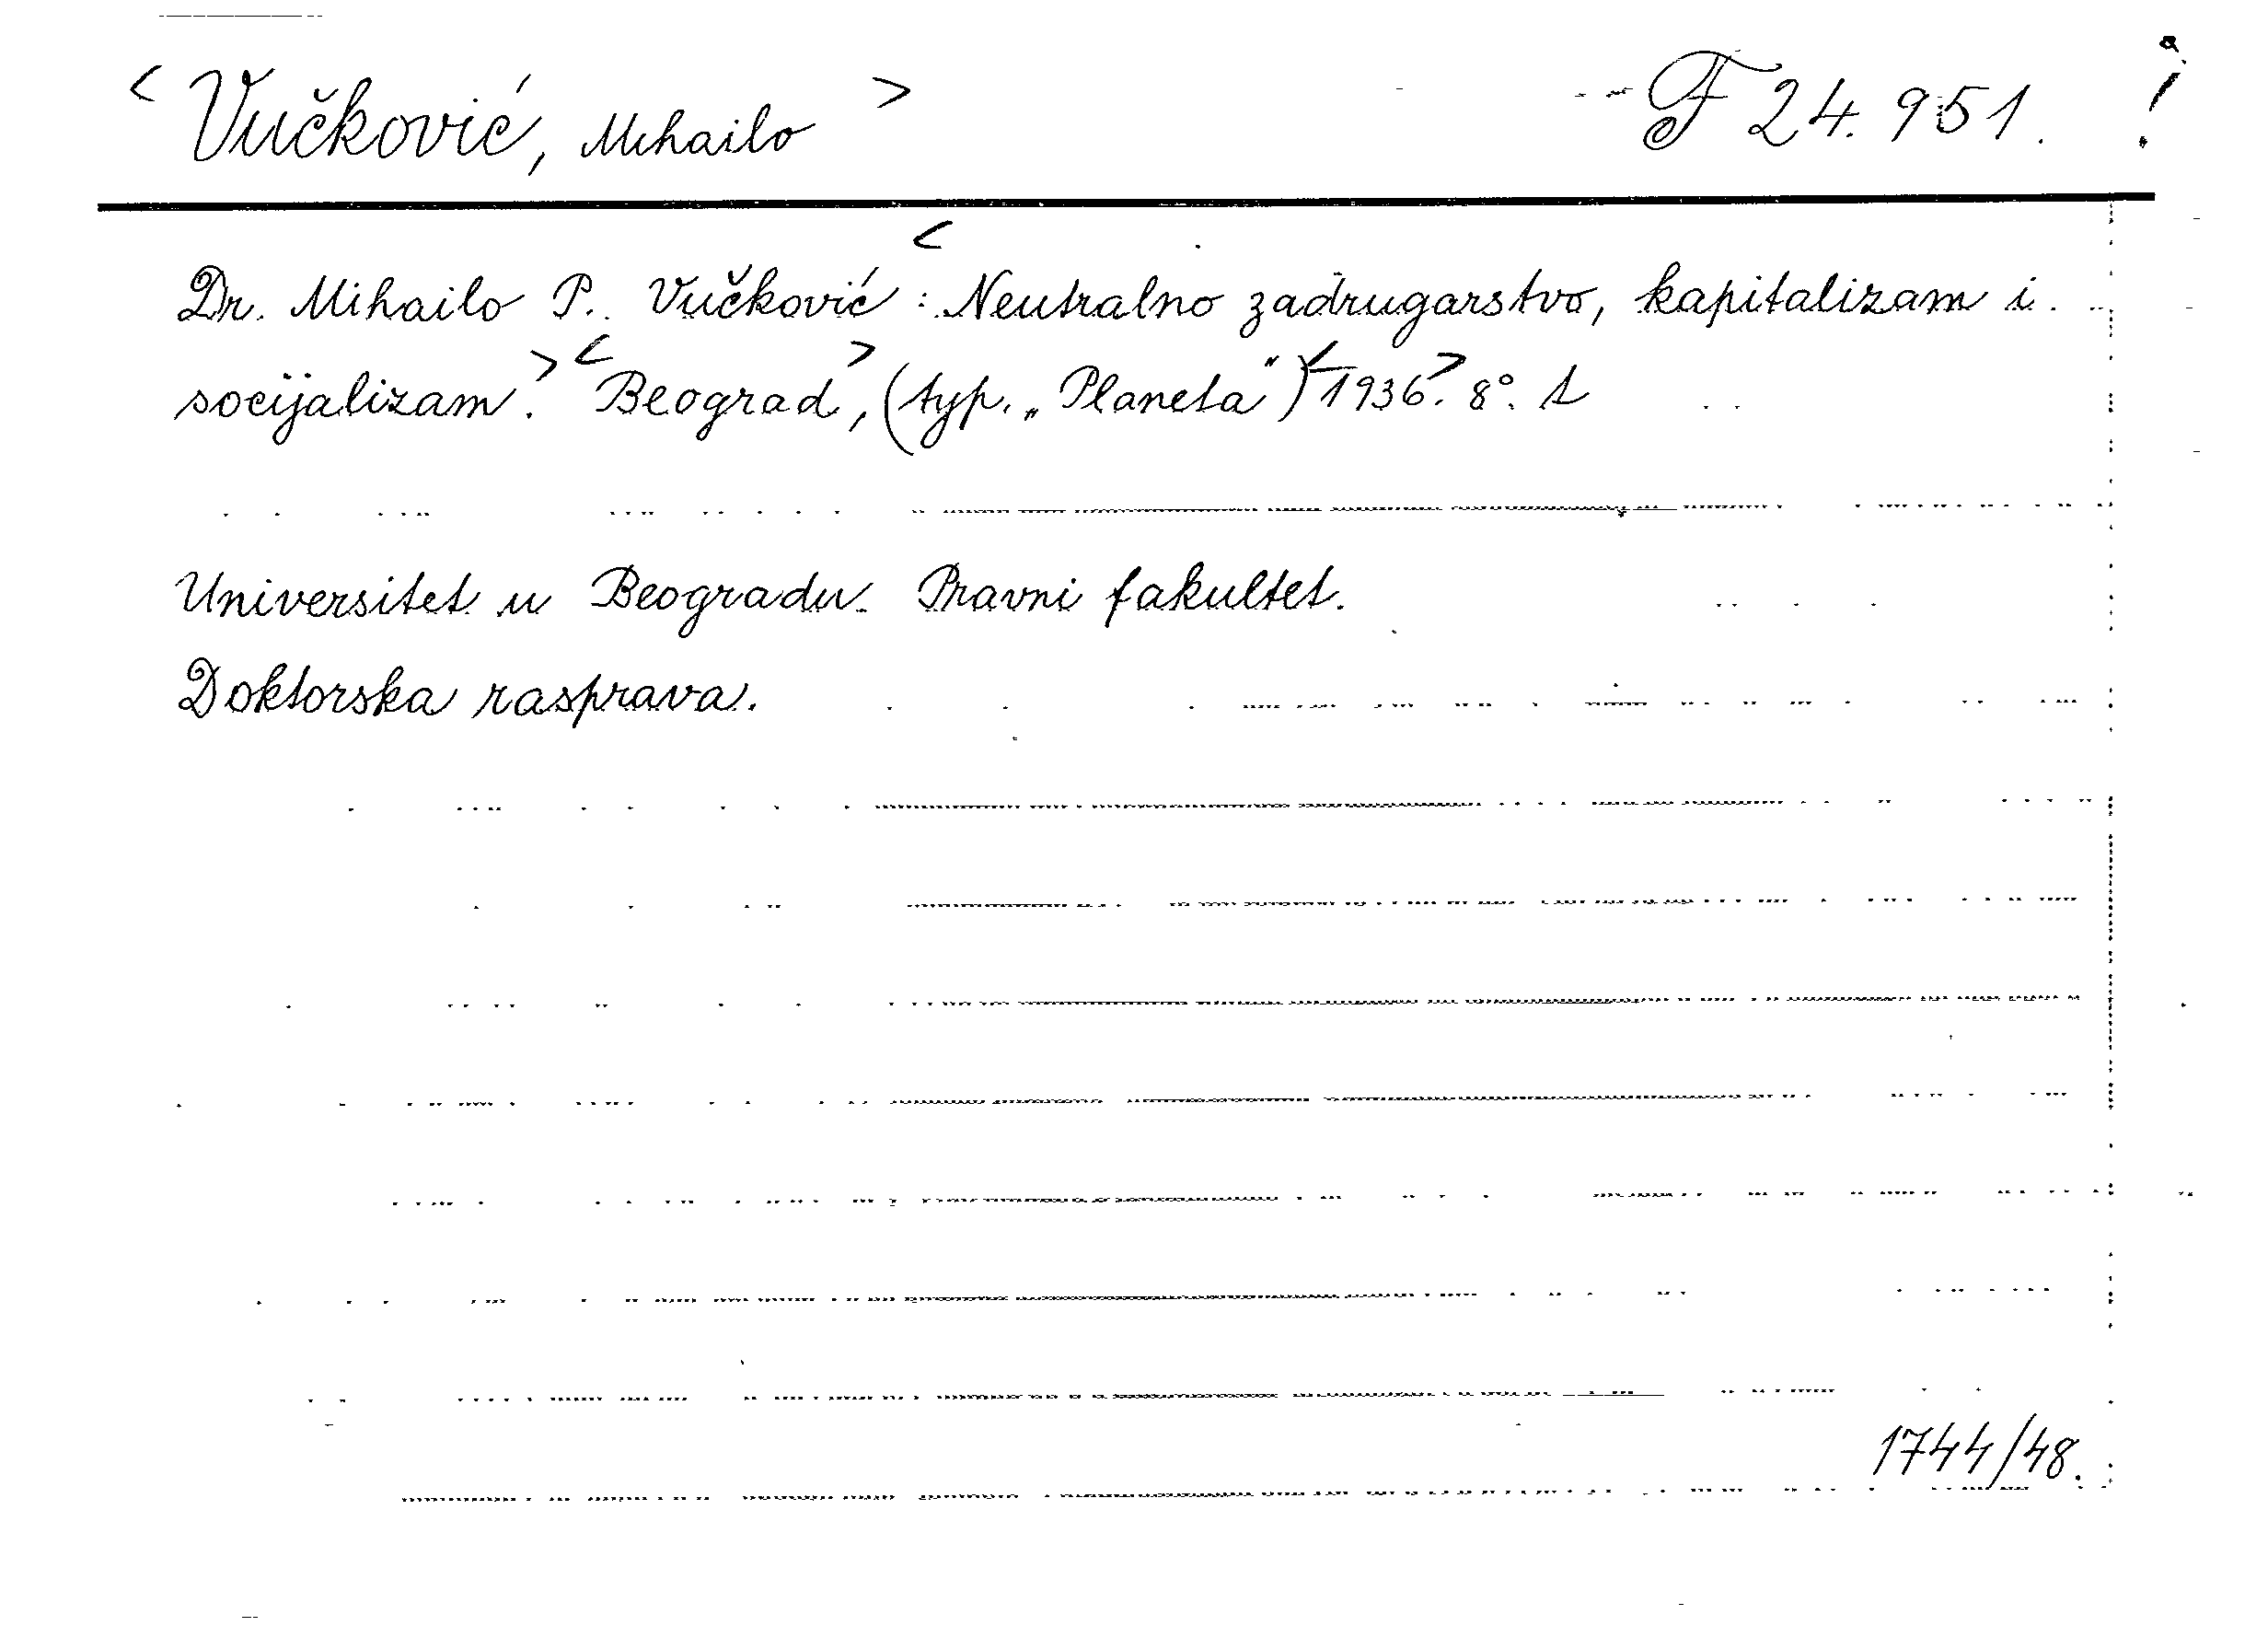 < Vučković, Mihailo > F 24.951. !
Dr. Mihailo P. Vučković : < Neutralno zadrugarstvo, kapitalizam i
socijalizam. > < Beograd >, (typ. „Planeta") < 1936. > 8°. 1
Universitet u Beogradu. Pravni fakultet.
Doktorska rasprava.
1744/48.